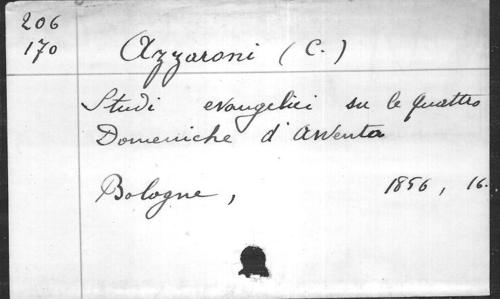 206
170
Azzaroni (C.)
Studi evangelici su le quattro
Domeniche d'Avvento
Bologne, 1856, 16.